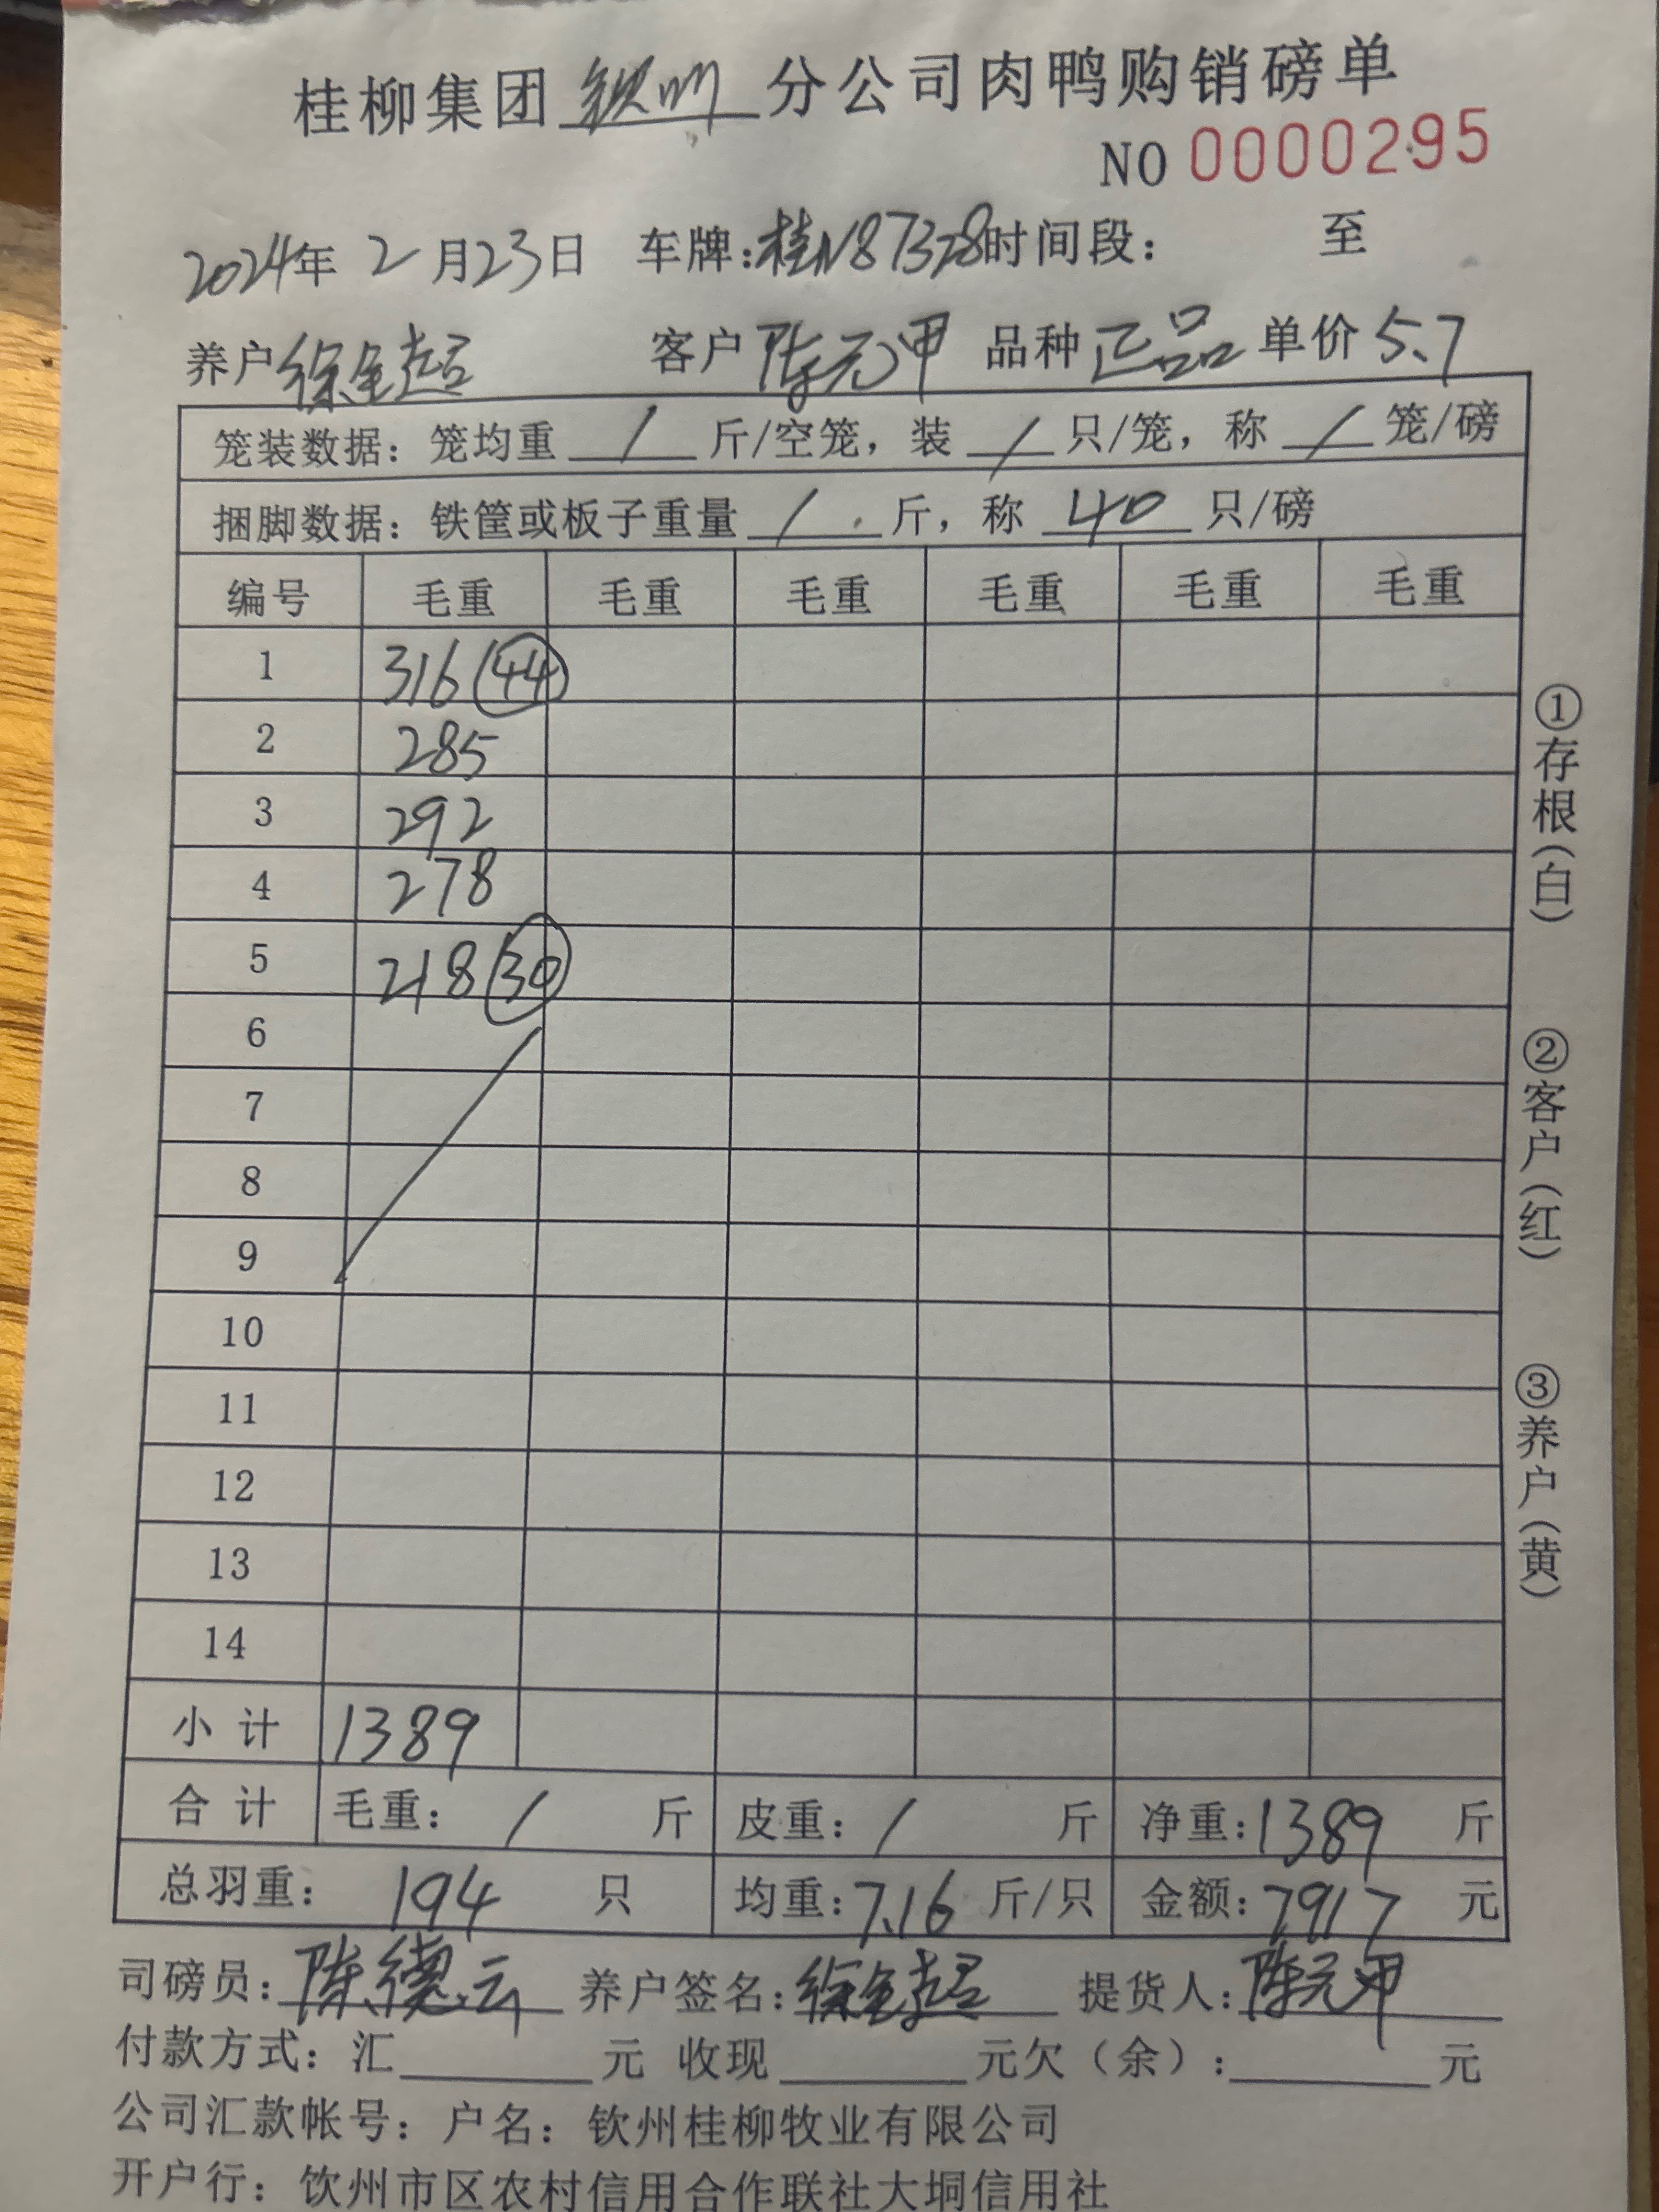 桂柳集团 钦州 分公司肉鸭购销磅单
NO 0000295
2024年 2月23日 车牌:桂N87328时间段: 至
养户 徐全超 客户 陈元甲 品种 正品 单价 5.7
笼装数据: 笼均重 / 斤/空笼, 装 / 只/笼, 称 / 笼/磅
捆脚数据: 铁筐或板子重量 / 斤, 称 40 只/磅
编号 毛重 毛重 毛重 毛重 毛重 毛重
1 316 (44)
2 285
3 292
4 278
5 218 (30)
6
7
8
9
10
11
12
13
14
小计 1389
合计 毛重: / 斤 皮重: / 斤 净重: 1389 斤
总羽重: 194 只 均重: 7.16 斤/只 金额: 7917 元
司磅员: 陈德云 养户签名: 徐全超 提货人: 陈元甲
付款方式: 汇 元 收现 元欠(余): 元
公司汇款帐号: 户名: 钦州桂柳牧业有限公司
开户行: 钦州市区农村信用合作联社大垌信用社
①存根(白)
②客户(红)
③养户(黄)